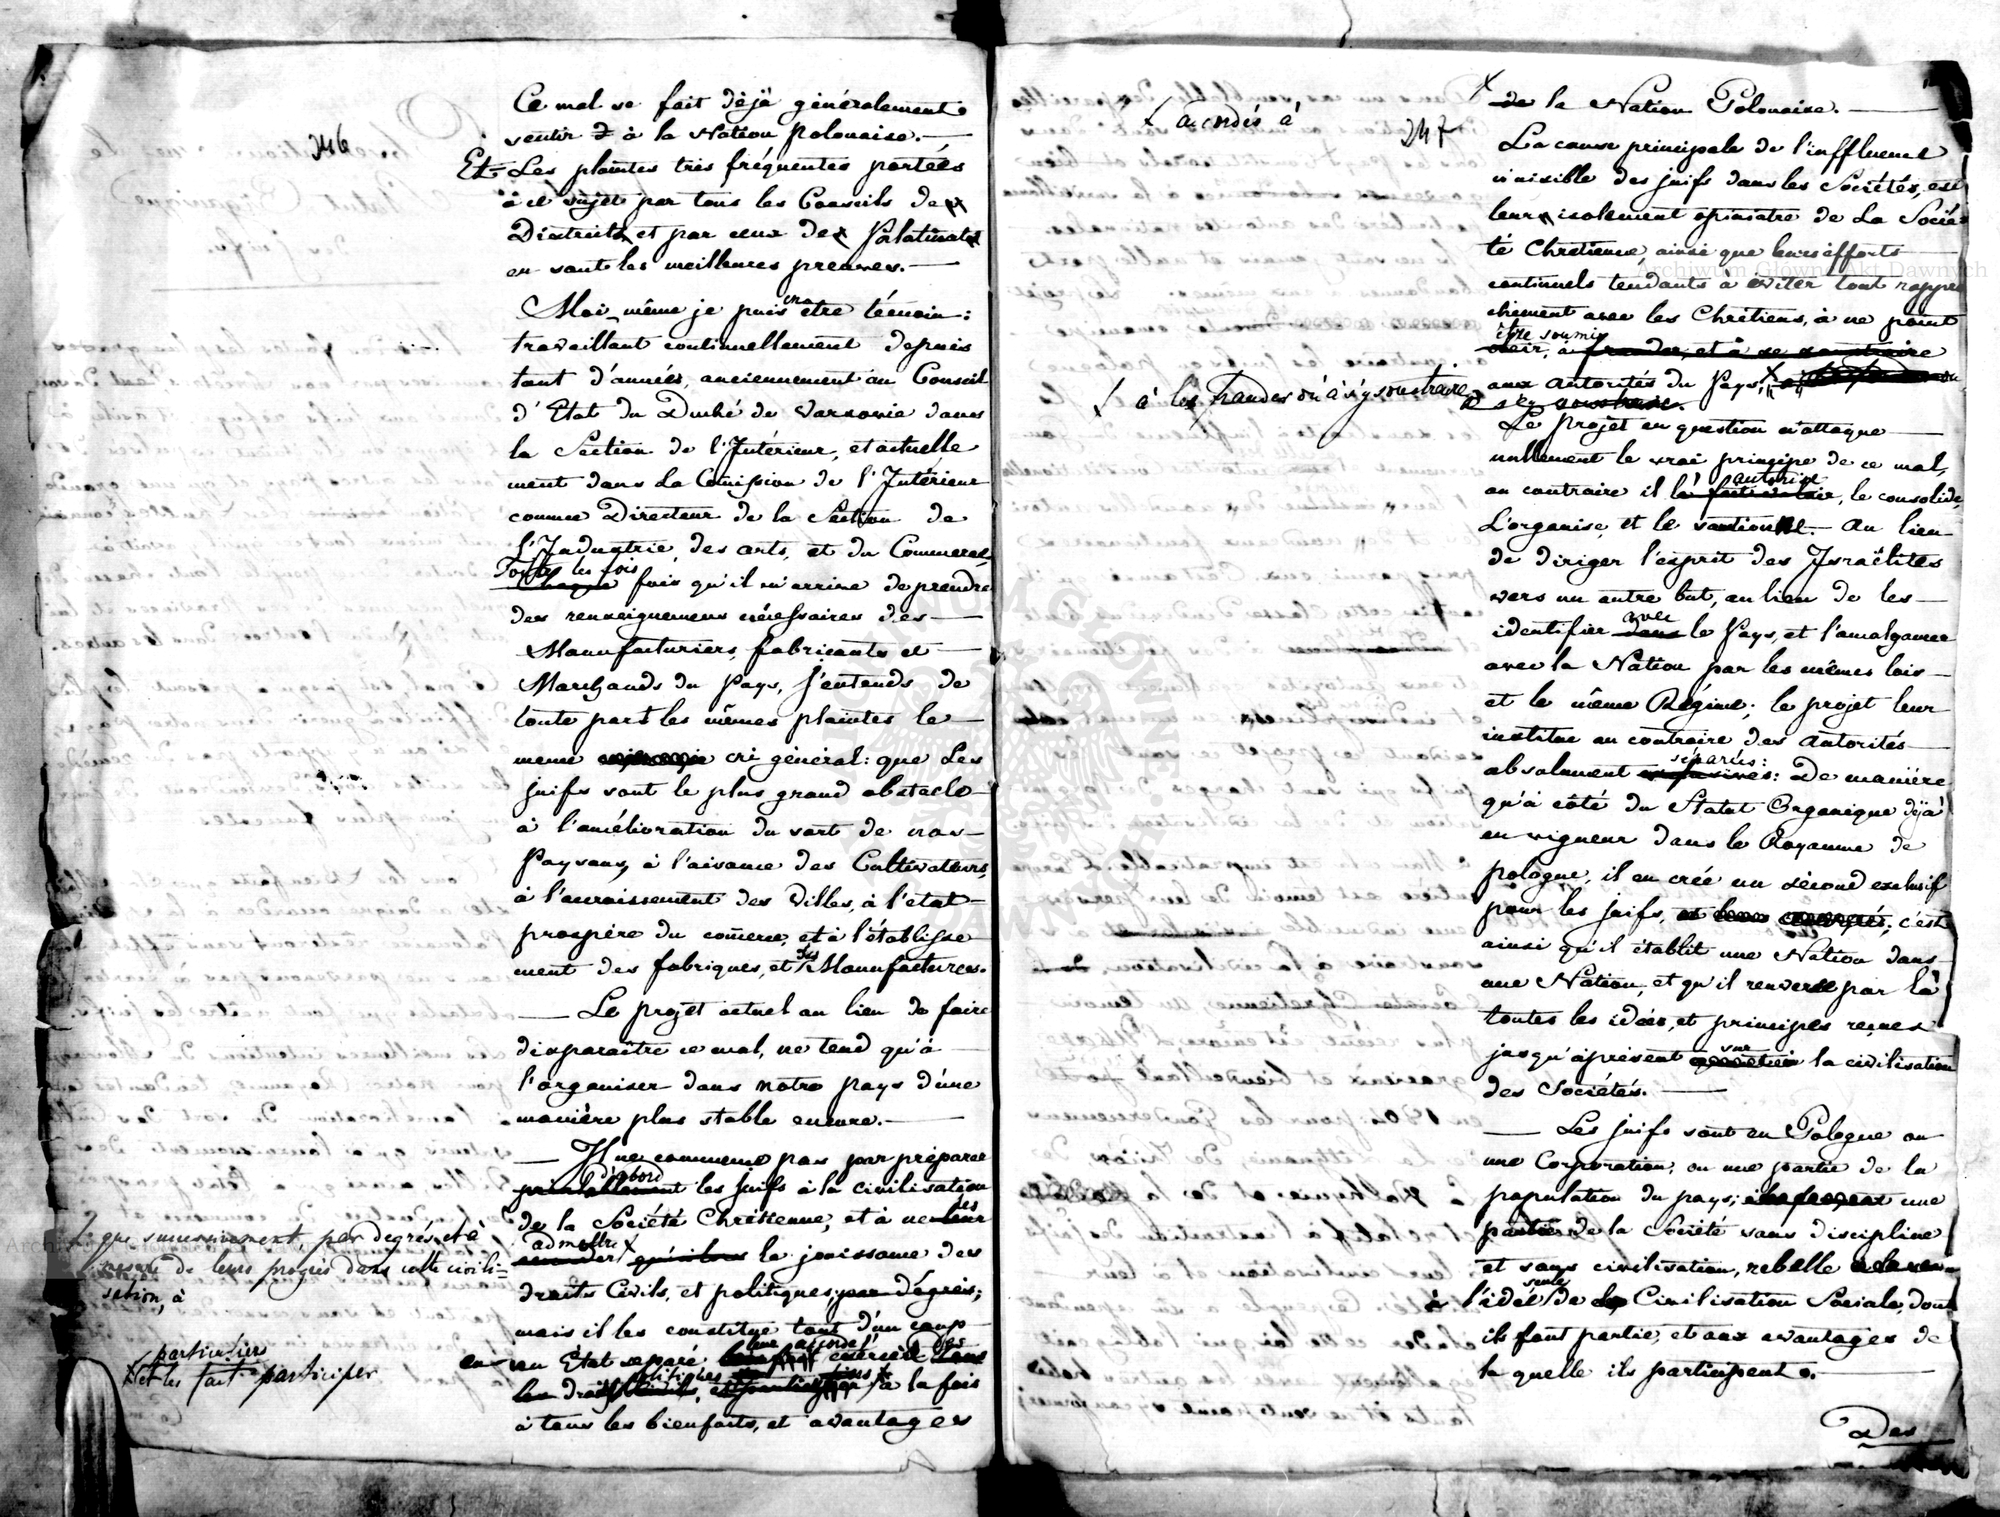 246
Ce mal se fait dèjà généralement
sentir à la Nation polonaise.
Et Les plaintes très fréquentes portées
à ce sujet par tous les Conseils de
Districts, et par ceux de Palatinats
en sont les meilleures preuves.
Moi même je puis en être témoin:
travaillant continuellement depuis
tant d'années, anciennement au Conseil
d'Etat du Duché de Varsovie dans
la Section de l'Intérieur, et actuelle
ment dans la Comission de l'Intérieur
comme Directeur de la Section de
l'Industrie, des arts, et du Commerce,
Toutes les fois
Chaque fois qu'il m'arrive de prendre
des renseignemens nécessaires des
Manufacturiers, fabricants et
Marchands du Pays, j'entends de
toute part les mêmes plaintes le
meme cri général: que les
juifs sont le plus grand obstacle
à l'amélioration du sort de nos
Paysans, à l'aisance des Cultivateurs,
à l'accroissement des Villes, à l'etat
prospère du comerce, et à l'établisse
ment des fabriques, et des Manufactures.
Le projet actuel au lieu de faire
disparaître ce mal, ne tend qu'à
l'organiser dans notre pays d'une
manière plus stable encore.
Il ne commence pas par préparer
d'abord
principalement les juifs à la civilisation
de la Société Chrétienne, et à ne les
leur
admettre X
accorder qu'alors la jouissance des
droits Civils, et politiques, par dégrès;
mais il les constitue tout d'un coup
en un Etat séparé
politiques à la fois
à tous les bienfaits, et avantages
X que successivement, par degrés, et à
mesure de leurs progrès dans cette civili-
sation, à
particuliers
X et les fait participer
X accordés à
247
X de la Nation Polonaise.
La cause principale de l'influence
nuisible des juifs dans les Sociétés, est
leur isolement opiniatre de la Socié-
té Chretienne, ainsi que leurs efforts
continuels tendants à eviter tout rappro
chement avec les Chrétiens, à ne point
être soumis
obeir, à frauder, et à se soustraire
aux autorités du Pays, X
X à les frauder ou à s'y soustraire
s'y soustraire.
Le projet en question n'attaque
nullement le vrai principe de ce mal,
autorise
au contraire il le fait valoir, le consolide,
L'organise, et le sanctionne. Au lieu
de diriger l'esprit des Israëlites
vers un autre but, au lieu de les
avec
identifier dans le Pays, et l'amalgamer
avec la Nation par les mêmes lois
et le même Régime; le projet leur
institue au contraire des autorités
séparées:
absolument exclusives: De manière
qu'à côté du Statut Organique déjà
en vigueur dans le Royaume de
pologne, il en crée un sécond exclusif
pour les juifs, c'est
ainsi qu'il établit une Nation dans
une Nation, et qu'il renverse par là
toutes les idées, et principes reçues
sur
jusqu'àprésent la civilisation
des Sociétés.
Les juifs sont en Pologne ou
une Corporation, ou une partie de la
population du pays; une
partie de la Société sans discipline
et sans civilisation, rebelle
seule
à l'idée de Civilisation Sociale, dont
ils font partie, et aux avantages de
la quelle ils participent.
Des
Archiwum Główne Akt Dawnych